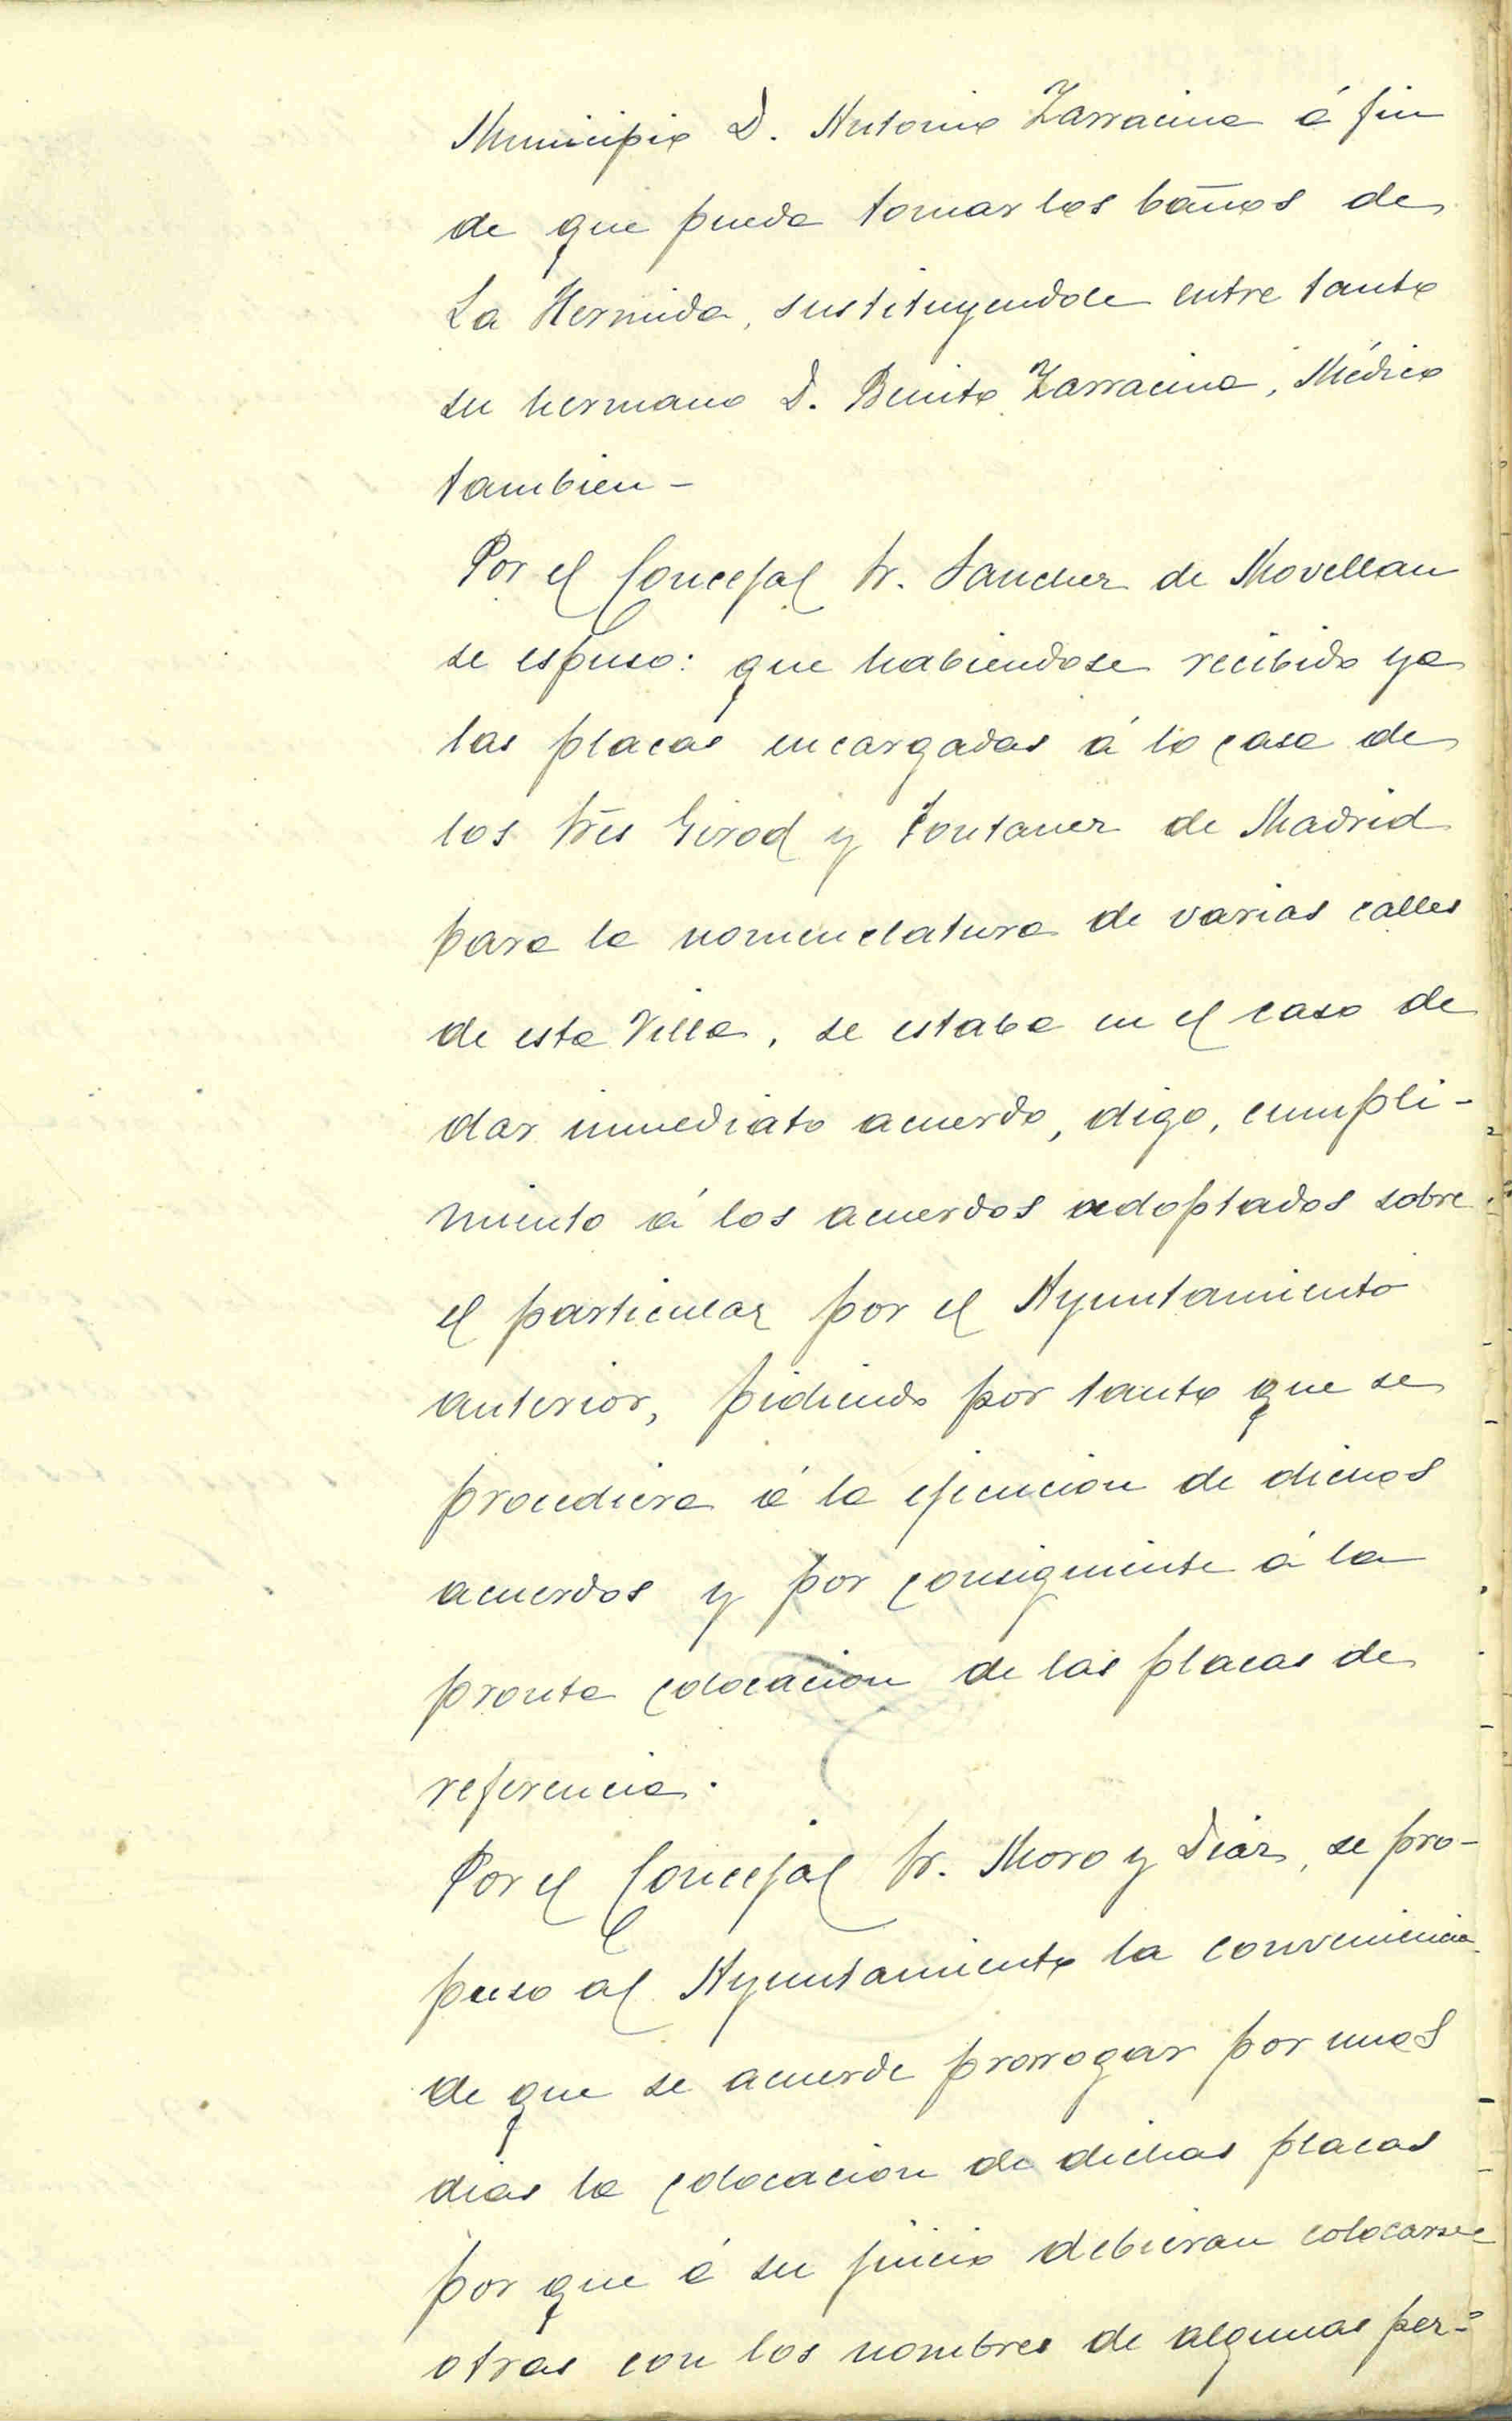 Municipio D. Antonio Zarracina á fin
de que pueda tomar los baños de
La Hermida, sustituyendole entre tanto
su hermano D. Benito Zarracina, Médico
tambien -
Por el Concejal Sr. Sanchez de Movellan
se espuso: que habiendose recibido ya
las placas encargadas á la casa de
los Sres Girod y Fontanez de Madrid
para la nomenclatura de varias calles
de esta Villa, se estaba en el caso de
dar inmediato acuerdo, digo, cumpli-
miento á los acuerdos adoptados sobre
el particular por el Ayuntamiento
anterior, pidiendo por tanto que se
procediera á la ejecucion de dichos
acuerdos y por consiguiente á la
pronta colocacion de las placas de
referencia.
Por el Concejal Sr. Moro y Diaz, se pro-
puso al Ayuntamiento la conveniencia
de que se acuerde prorrogar por unos
dias la colocacion de dichas placas
por que á su juicio debieran colocarse
otras con los nombres de algunas per-